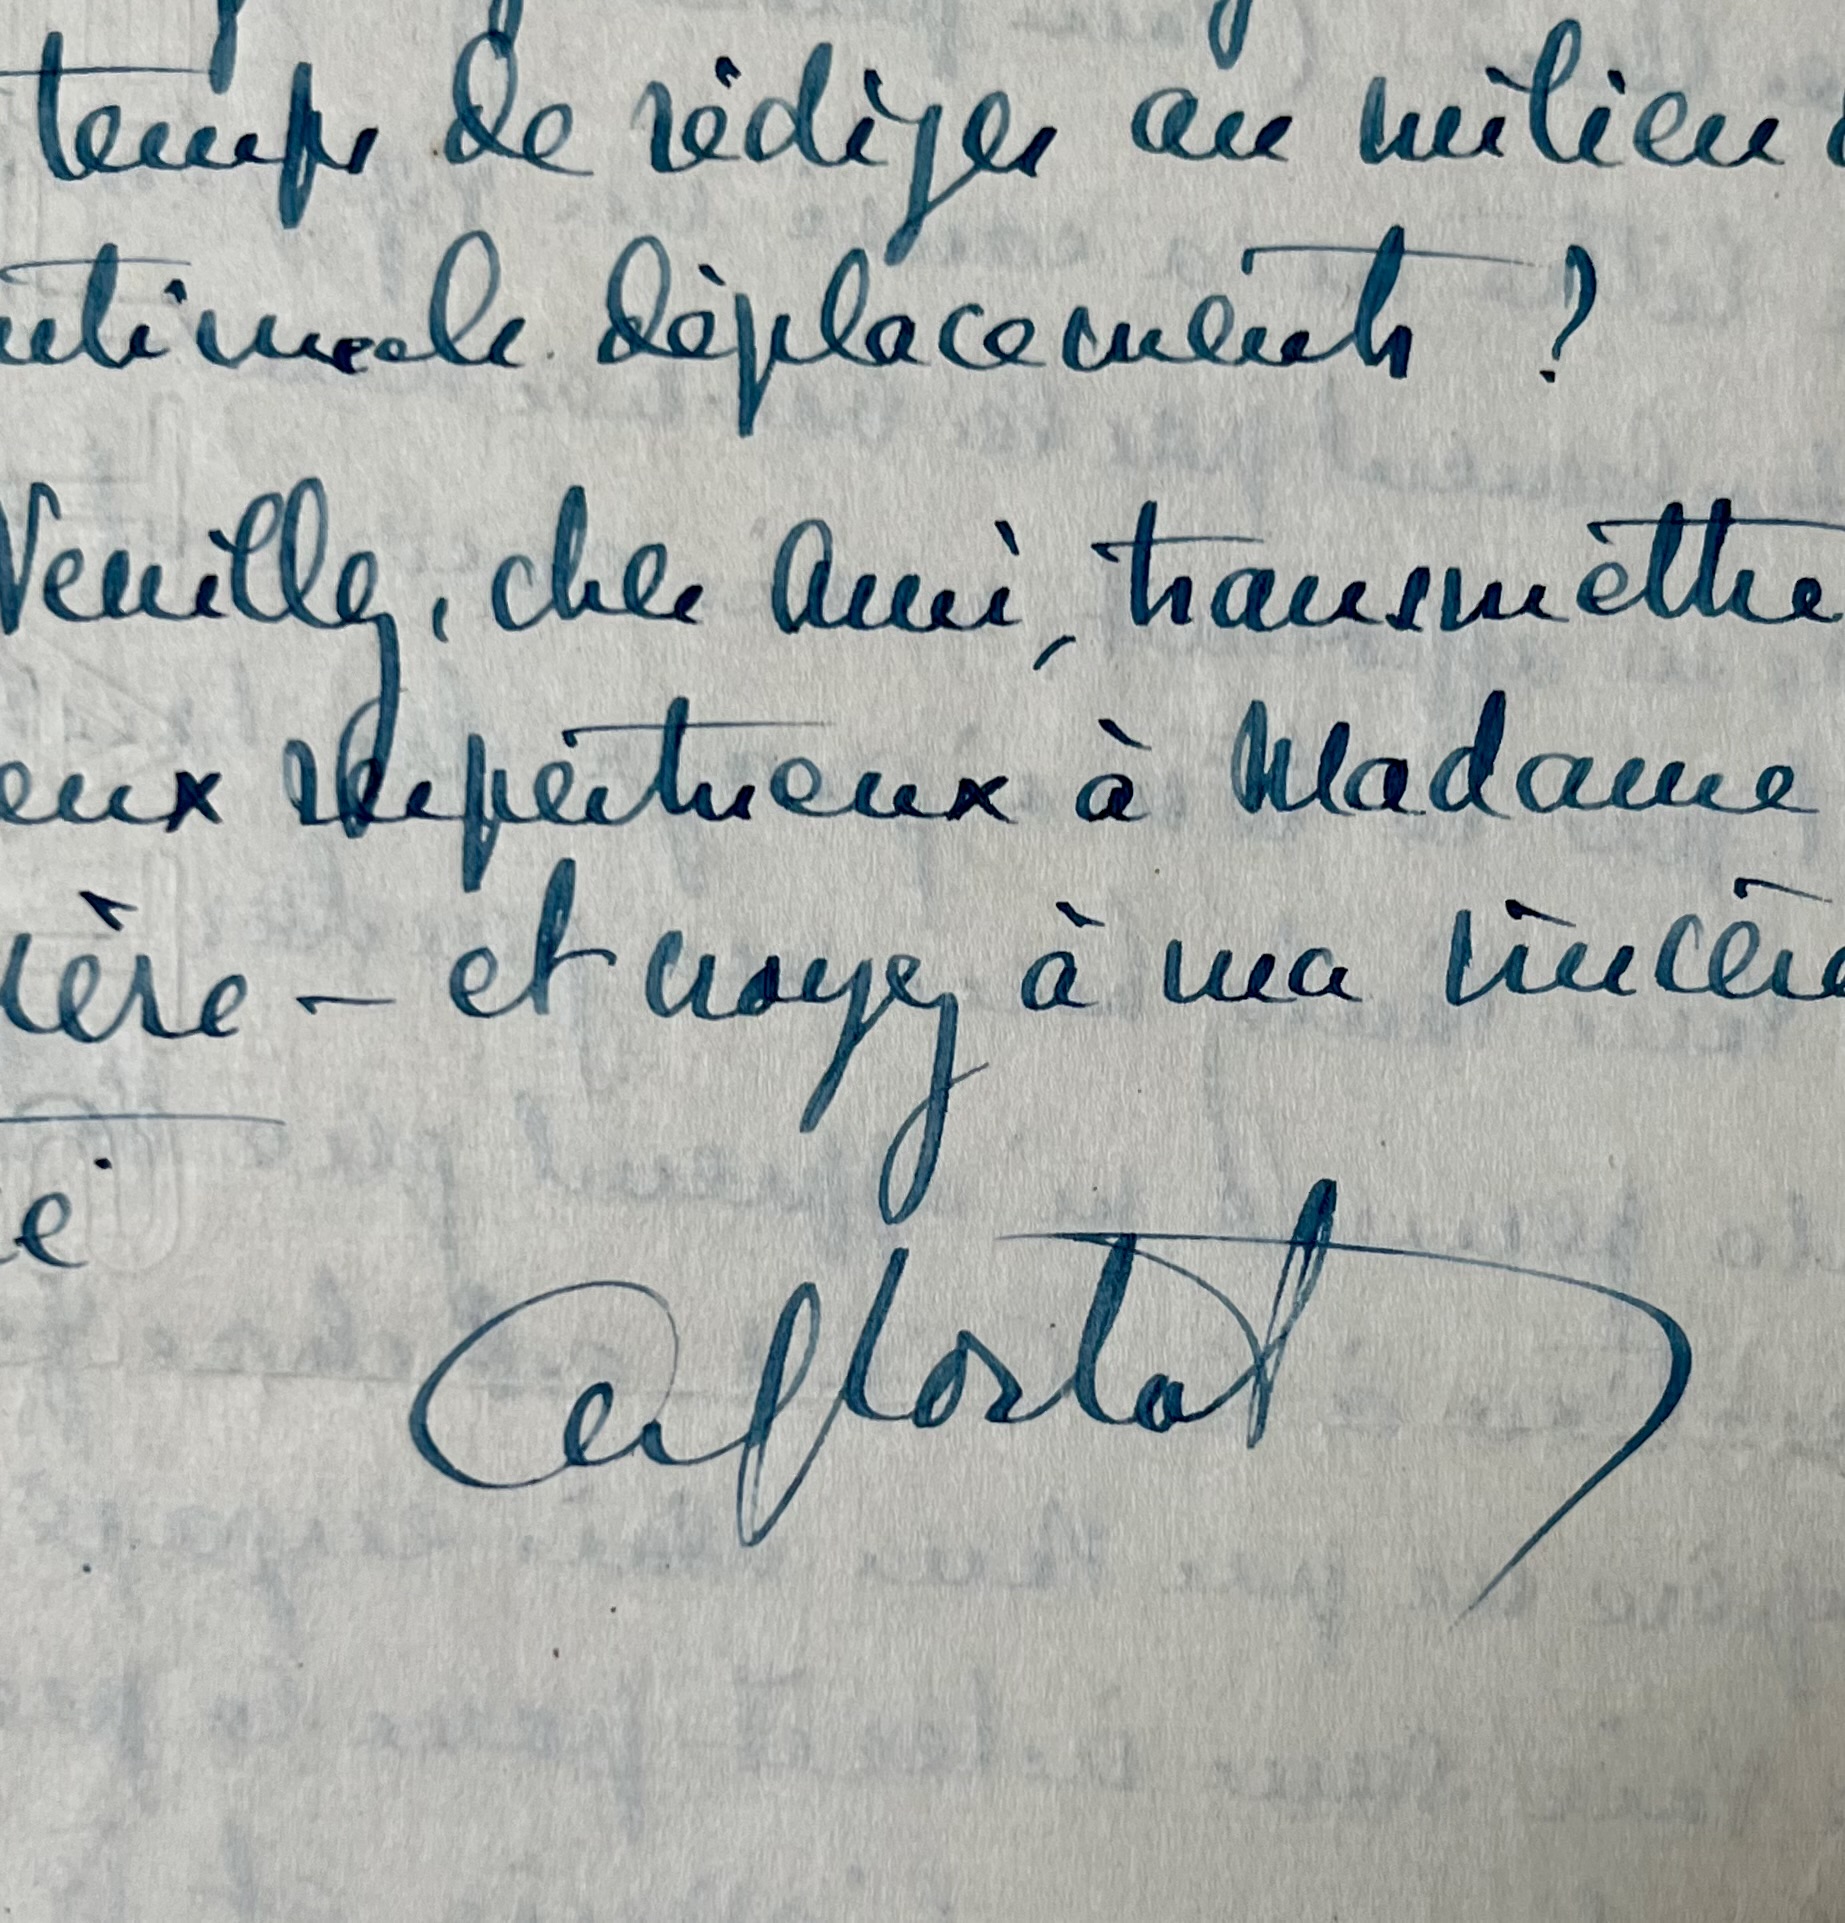 temps de rédiger au milieu
déplacements ?
Veuillez, cher Ami, transmettre
eux respectueux à Madame
ière - et croyez à ma sincère
é